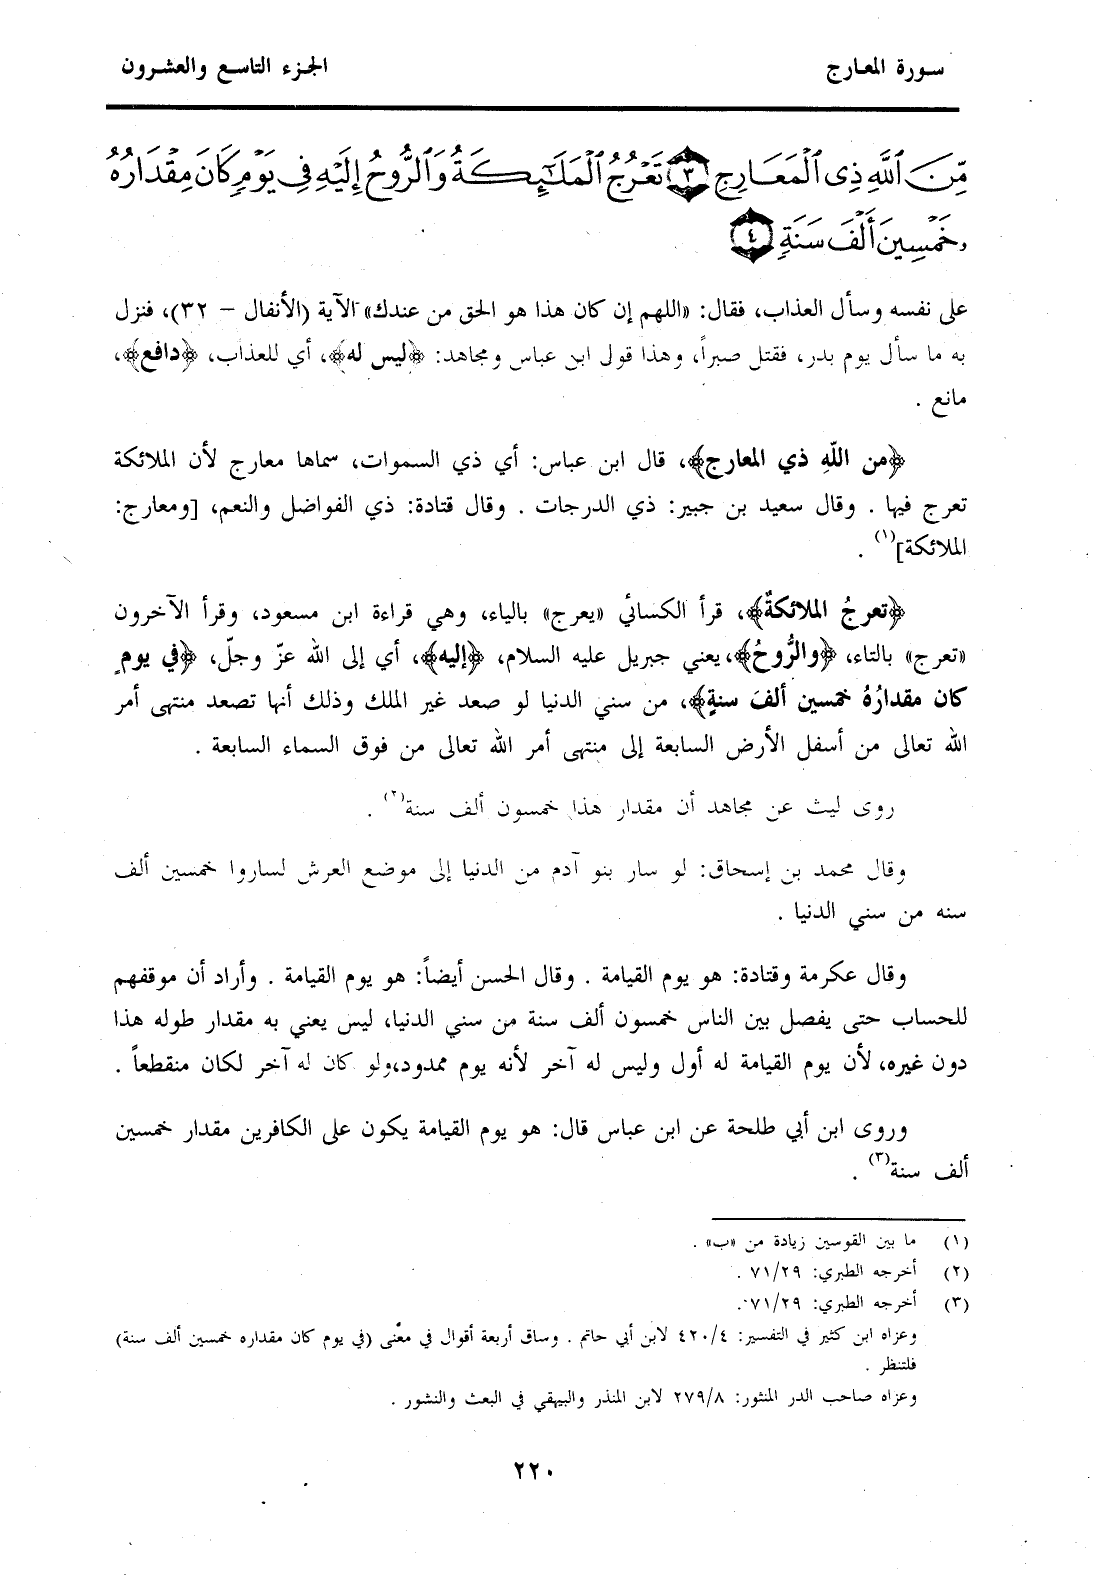 سورة المعارج
الجزء التاسع والعشرون
مِّنَ ٱللَّهِ ذِى ٱلْمَعَارِجِ ٣ تَعْرُجُ ٱلْمَلَٰٓئِكَةُ وَٱلرُّوحُ إِلَيْهِ فِى يَوْمٍ كَانَ مِقْدَارُهُۥ
خَمْسِينَ أَلْفَ سَنَةٍ ٤
على نفسه وسأل العذاب، فقال: «اللهم إن كان هذا هو الحق من عندك» الآية (الأنفال – ٣٢)، فنزل
به ما سأل يوم بدر، فقتل صبراً، وهذا قول ابن عباس ومجاهد: ﴿ليس له﴾، أي للعذاب، ﴿دافع﴾،
مانع .
﴿من اللّهِ ذي المعارج﴾، قال ابن عباس: أي ذي السموات، سماها معارج لأن الملائكة
تعرج فيها . وقال سعيد بن جبير: ذي الدرجات . وقال قتادة: ذي الفواضل والنعم، [ومعارج:
الملائكة](١) .
﴿تعرجُ الملائكةُ﴾، قرأ الكسائي «يعرج» بالياء، وهي قراءة ابن مسعود، وقرأ الآخرون
«تعرج» بالتاء، ﴿والرُّوحُ﴾،يعني جبريل عليه السلام، ﴿إليه﴾، أي إلى الله عزّ وجلّ، ﴿في يومٍ
كان مقدارُهُ خمسين ألفَ سنةٍ﴾، من سني الدنيا لو صعد غير الملك وذلك أنها تصعد منتهى أمر
الله تعالى من أسفل الأرض السابعة إلى منتهى أمر الله تعالى من فوق السماء السابعة .
روى ليث عن مجاهد أن مقدار هذا خمسون ألف سنة(٢) .
وقال محمد بن إسحاق: لو سار بنو آدم من الدنيا إلى موضع العرش لساروا خمسين ألف
سنه من سني الدنيا .
وقال عكرمة وقتادة: هو يوم القيامة . وقال الحسن أيضاً: هو يوم القيامة . وأراد أن موقفهم
للحساب حتى يفصل بين الناس خمسون ألف سنة من سني الدنيا، ليس يعني به مقدار طوله هذا
دون غيره، لأن يوم القيامة له أول وليس له آخر لأنه يوم ممدود،ولو كان له آخر لكان منقطعاً .
وروى ابن أبي طلحة عن ابن عباس قال: هو يوم القيامة يكون على الكافرين مقدار خمسين
ألف سنة(٣) .
(١) ما بين القوسين زيادة من «ب» .
(٢) أخرجه الطبري: ٧١/٢٩ .
(٣) أخرجه الطبري: ٧١/٢٩.
وعزاه ابن كثير في التفسير: ٤٢٠/٤ لابن أبي حاتم . وساق أربعة أقوال في معنى (في يوم كان مقداره خمسين ألف سنة)
فلتنظر .
وعزاه صاحب الدر المنثور: ٢٧٩/٨ لابن المنذر والبيهقي في البعث والنشور .
٢٢٠